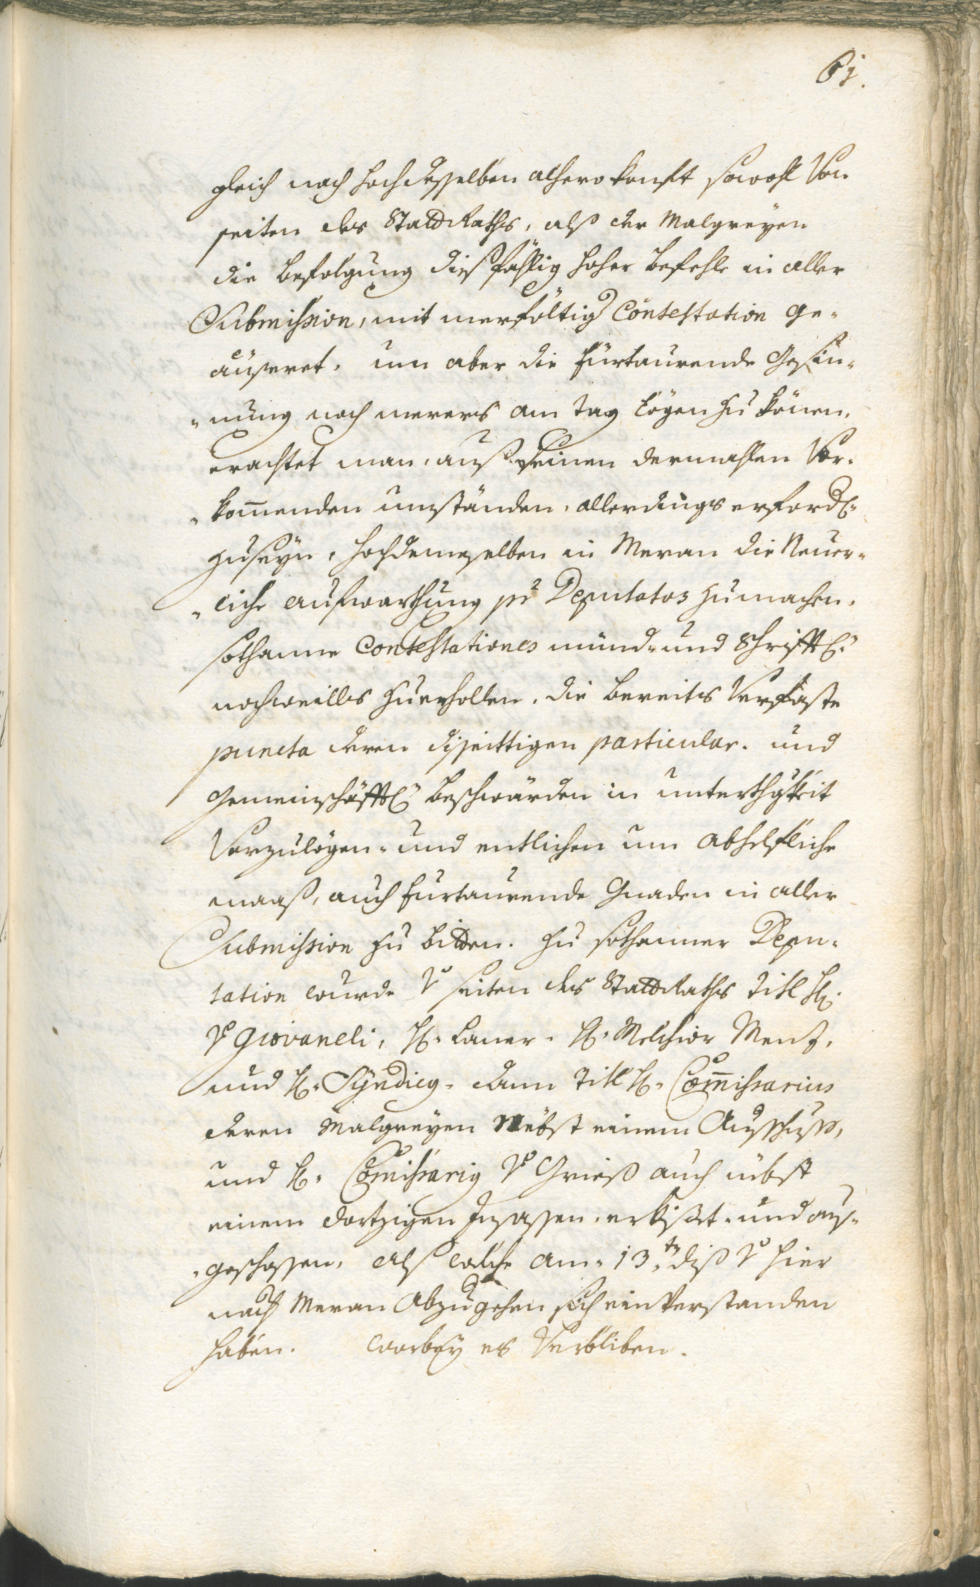 61.
gleich nach hochdesselben alhero konfft sowohl von
seiten des StattRaths, alß der Malgreyen
die befolgung dißfählig hoher befehle in aller
Submission, mit merföltig Contestation ge-
äuseret, um aber die fürtaurende Gesin-
-nung noch merers am tag lögen zu könen,
erachtet man, auß seinen dermahlen vor-
-kommenden umständen, allerdings erforderl:
zuseyn, hochdemeselben in Meran die Neuer-
-liche aufwarthung per Deputatos zumachen,
sothanne Contestationes mündt- und Schrifftl:
nochweills zuerhollen, die bereits Verfaste
puncta deren diseittigen particular- und
gemeinschäfftl: beschwärden in unterthgkeit
Vorzulögen- und entlichen um abhelfliche
maaß, auch fürtaurende Gnaden in aller
Submission zu bitten. Zu sothanner Depu-
tation wurde v: seiten des StattRaths Titl H:
v: Giovaneli, H: Laner, H: Melchior Menz,
und H: Syndicg, dann Titl H: Commissarius
deren Malgreyen Nebst einem Ausschuss,
und H: Comissarig v: Grieß auch nebst
einem dortigen Insassen, erkißt- und aus-
-geschossen, alß welche am 13:tn diß v: hier
nach Meran Abzugehen sich einverstanden
haben. Worbey es Verbliben.